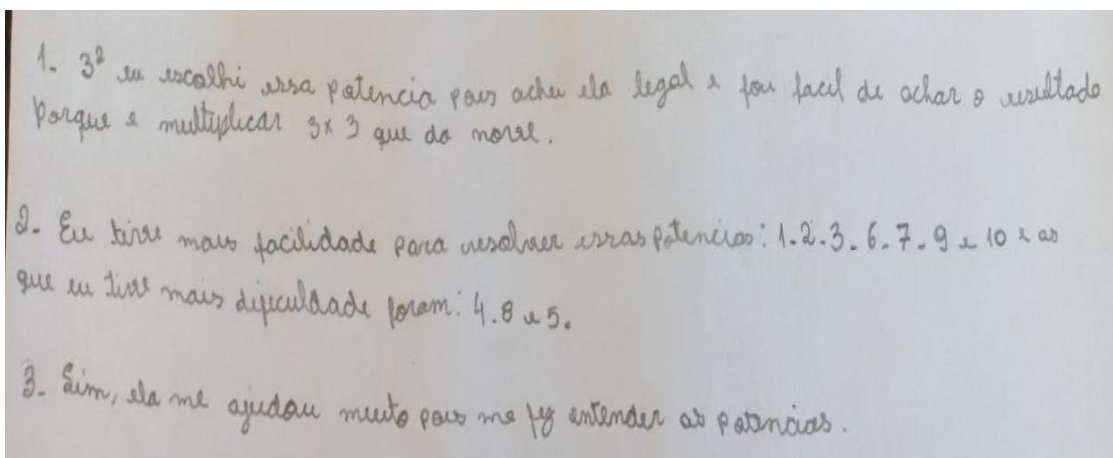 1- 3² eu escolhi essa potencia pois achei ela legal e foi facil de achar o resultado
Porque e multiplicar 3x3 que da nove.
2- Eu tive mais facilidade para resolver essas potencias: 1-2-3-6-7-9 e 10 e as
que eu tive mais dificuldade foram: 4.8 e 5.
3- Sim, ela me ajudou muito pois me fez entender as potencias.